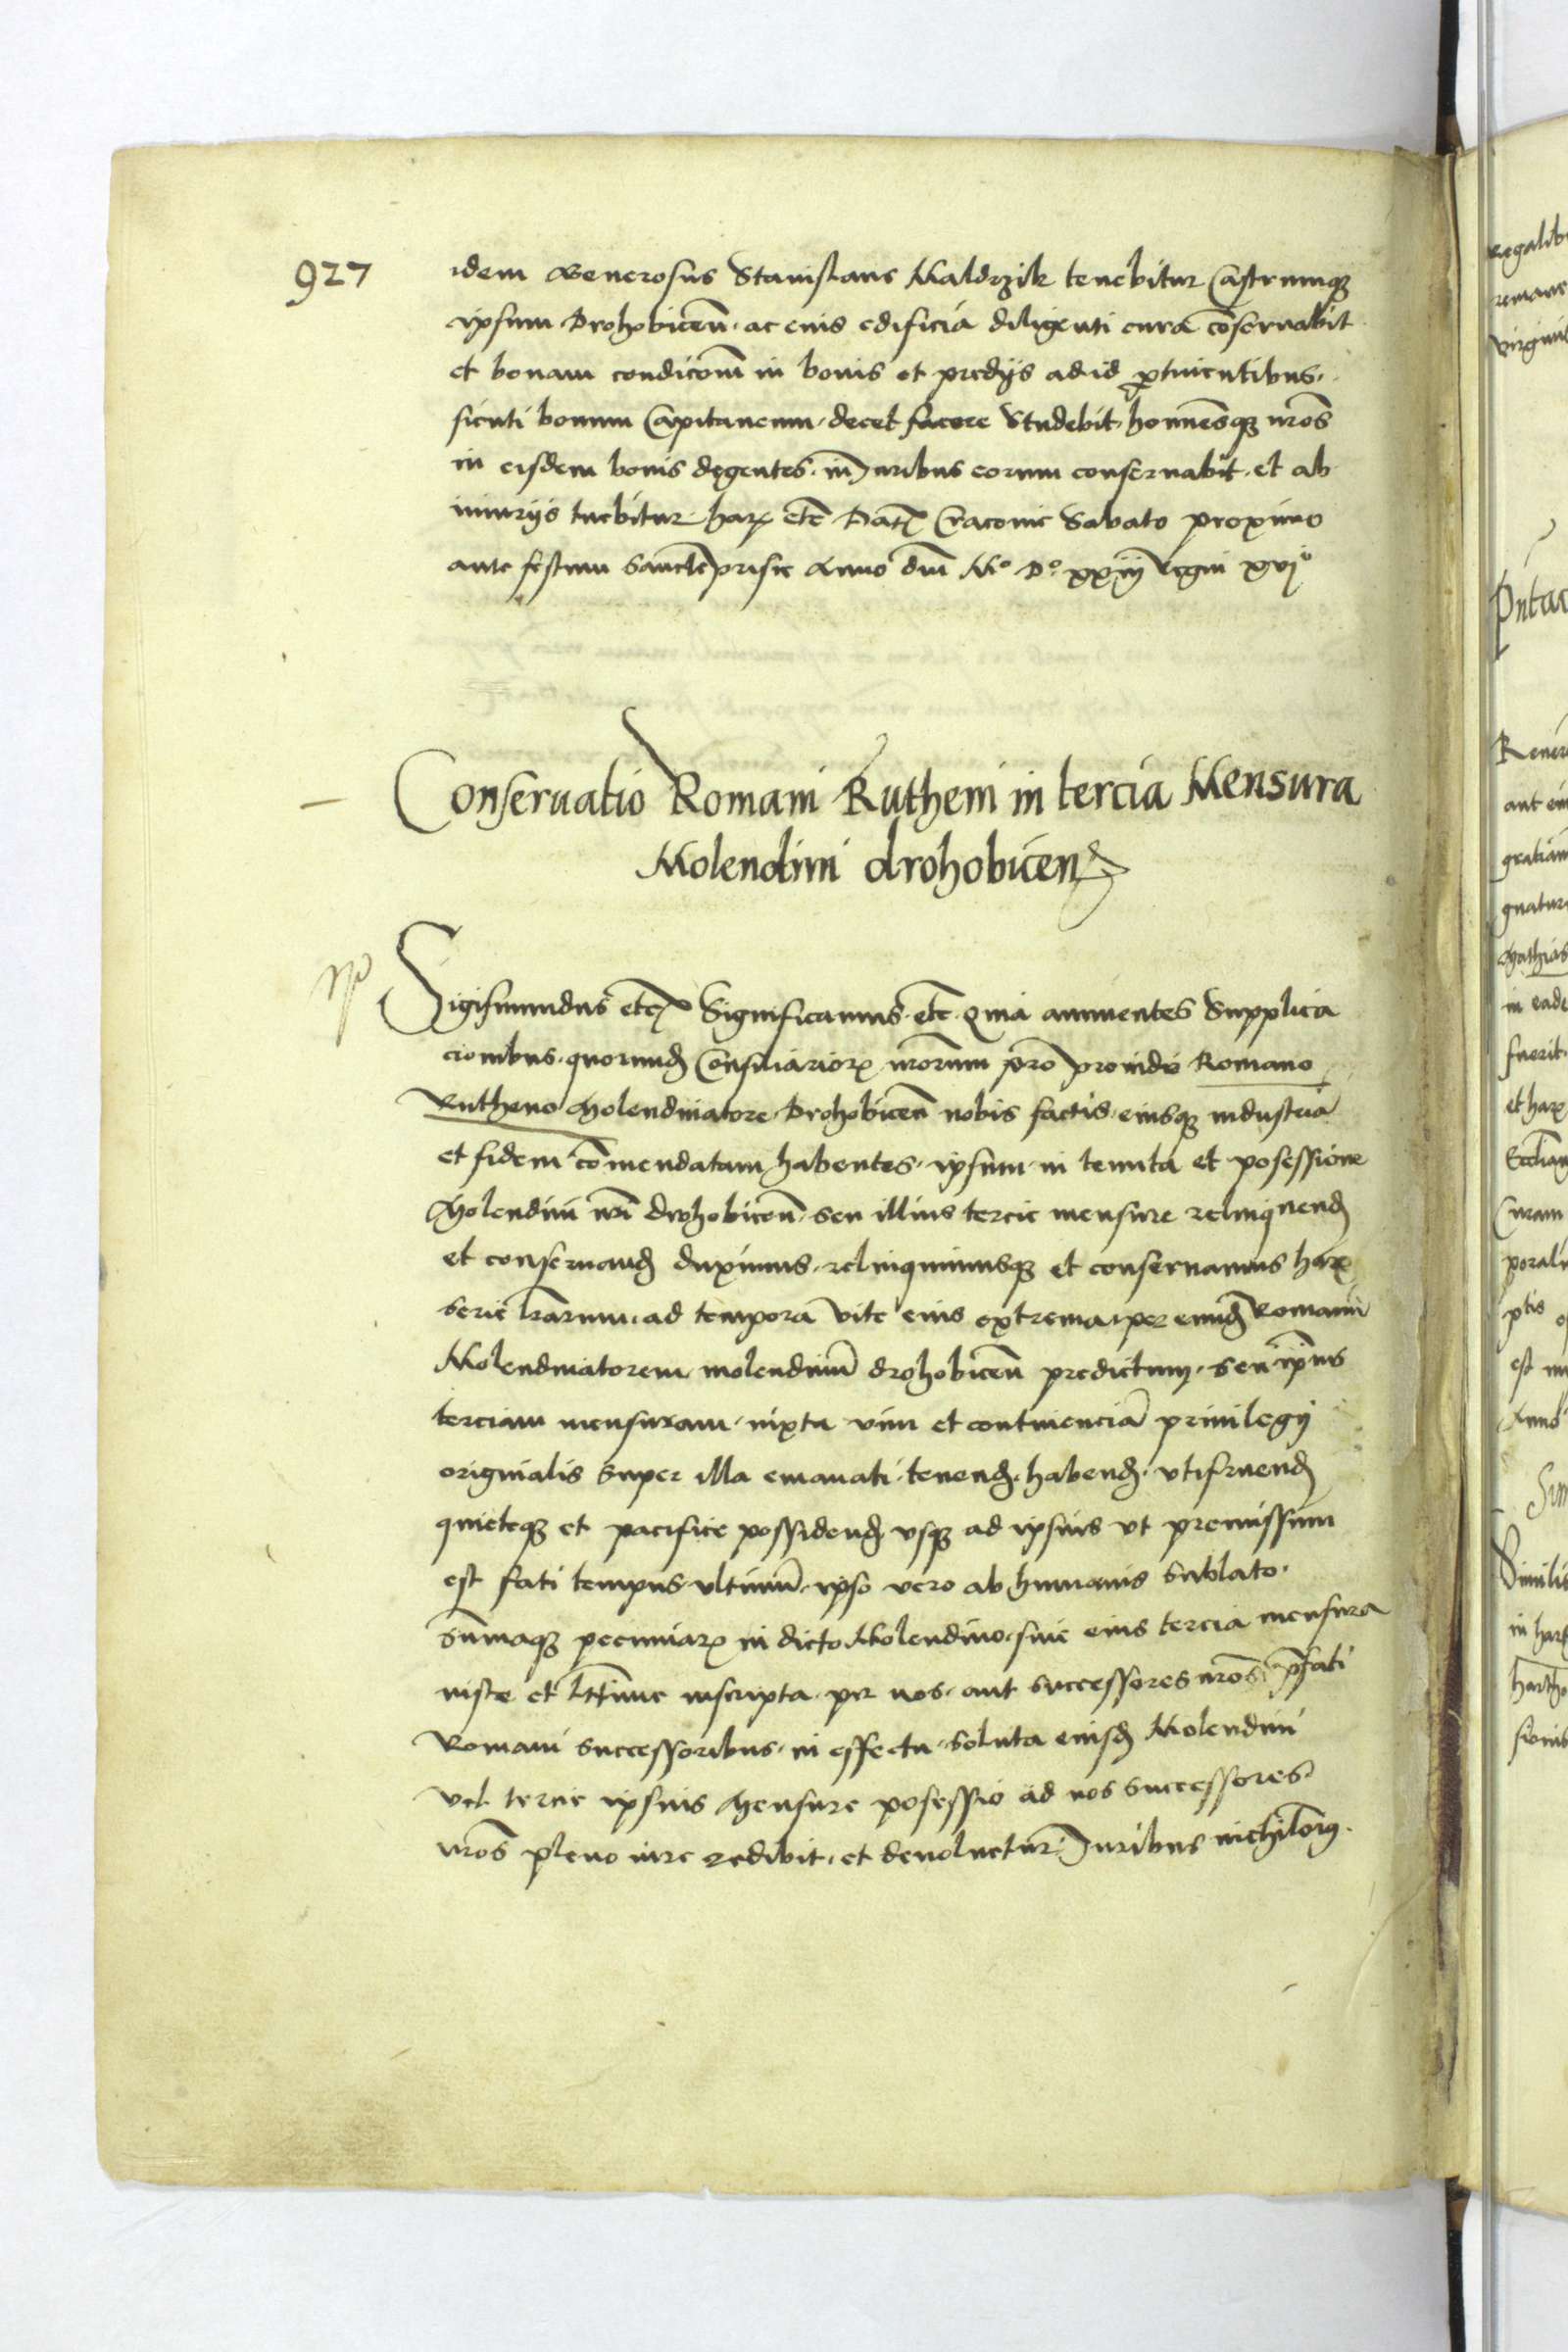 927
idem Generosus Stanislaus Maldrzik tenebitur Castrumqȝ
ipsum Drohobicen̄. ac eius edificia diligenti cura cōseruabit
et bonam condicōm in bonis et predijs ad id ꝑtinentibus.
sicuti bonum Capitaneum decet facere studebit. hominēsqȝ nr̄os
in eisdem bonis degentes. in Juribus eorum conseruabit. et ab
iniurijs tuebitur harꝝ etc̄ Datꝝ Cracouie Sabato proximo
ante festum Sancte prisce Anno dn̄i Mº Dº xxiij regni xvjº
Conseruatio Romani Rutheni in tercia Mensura
Molendini drohobicen
Sigismundus etc̄ Significamus. etc̄. Quia annuentes Supplica
cionibus. quorund Consiliariorꝝ nr̄orum pro prouido Romano
Rutheno Molendinatore Drohobicen̄ nobis factis. eiusqȝ industria
et fidem cōmendatam habentes. ipsum in tenuta et posessione
Molendini nr̄i drohobicen̄. seu illius tercie mensure relinquend
et conseruand duximus. relinquimusqȝ et conseruamus harꝝ
serie lr̄arum. ad tempora vite eius extrema. per eund Romanū
Molendinatorem molendinū drohobicen̄ predictum. seu ip̄ius
terciam mensuram. iuxta vim et continenciā priuilegij
originalis super illa emanati. tenend. habend. vtifruend
quieteqȝ et pacifice possidend vsqȝ ad ipsius vt premissum
est fati tempus vltimū. ipso vero ab humanis sublato.
Sūmaqȝ pecuniarꝝ in dicto Molendino. siue eius tercia mensura
iuste et lt̄time inscripta. per nos. aut successores nr̄os p̄fati
Romani successoribus. in effectu. soluta eiusd Molendini
vel tercie ipsius Mensure posessio ad nos successores
nr̄os pleno iure redibit. et deuoluetur. Juribus nichilom̄.